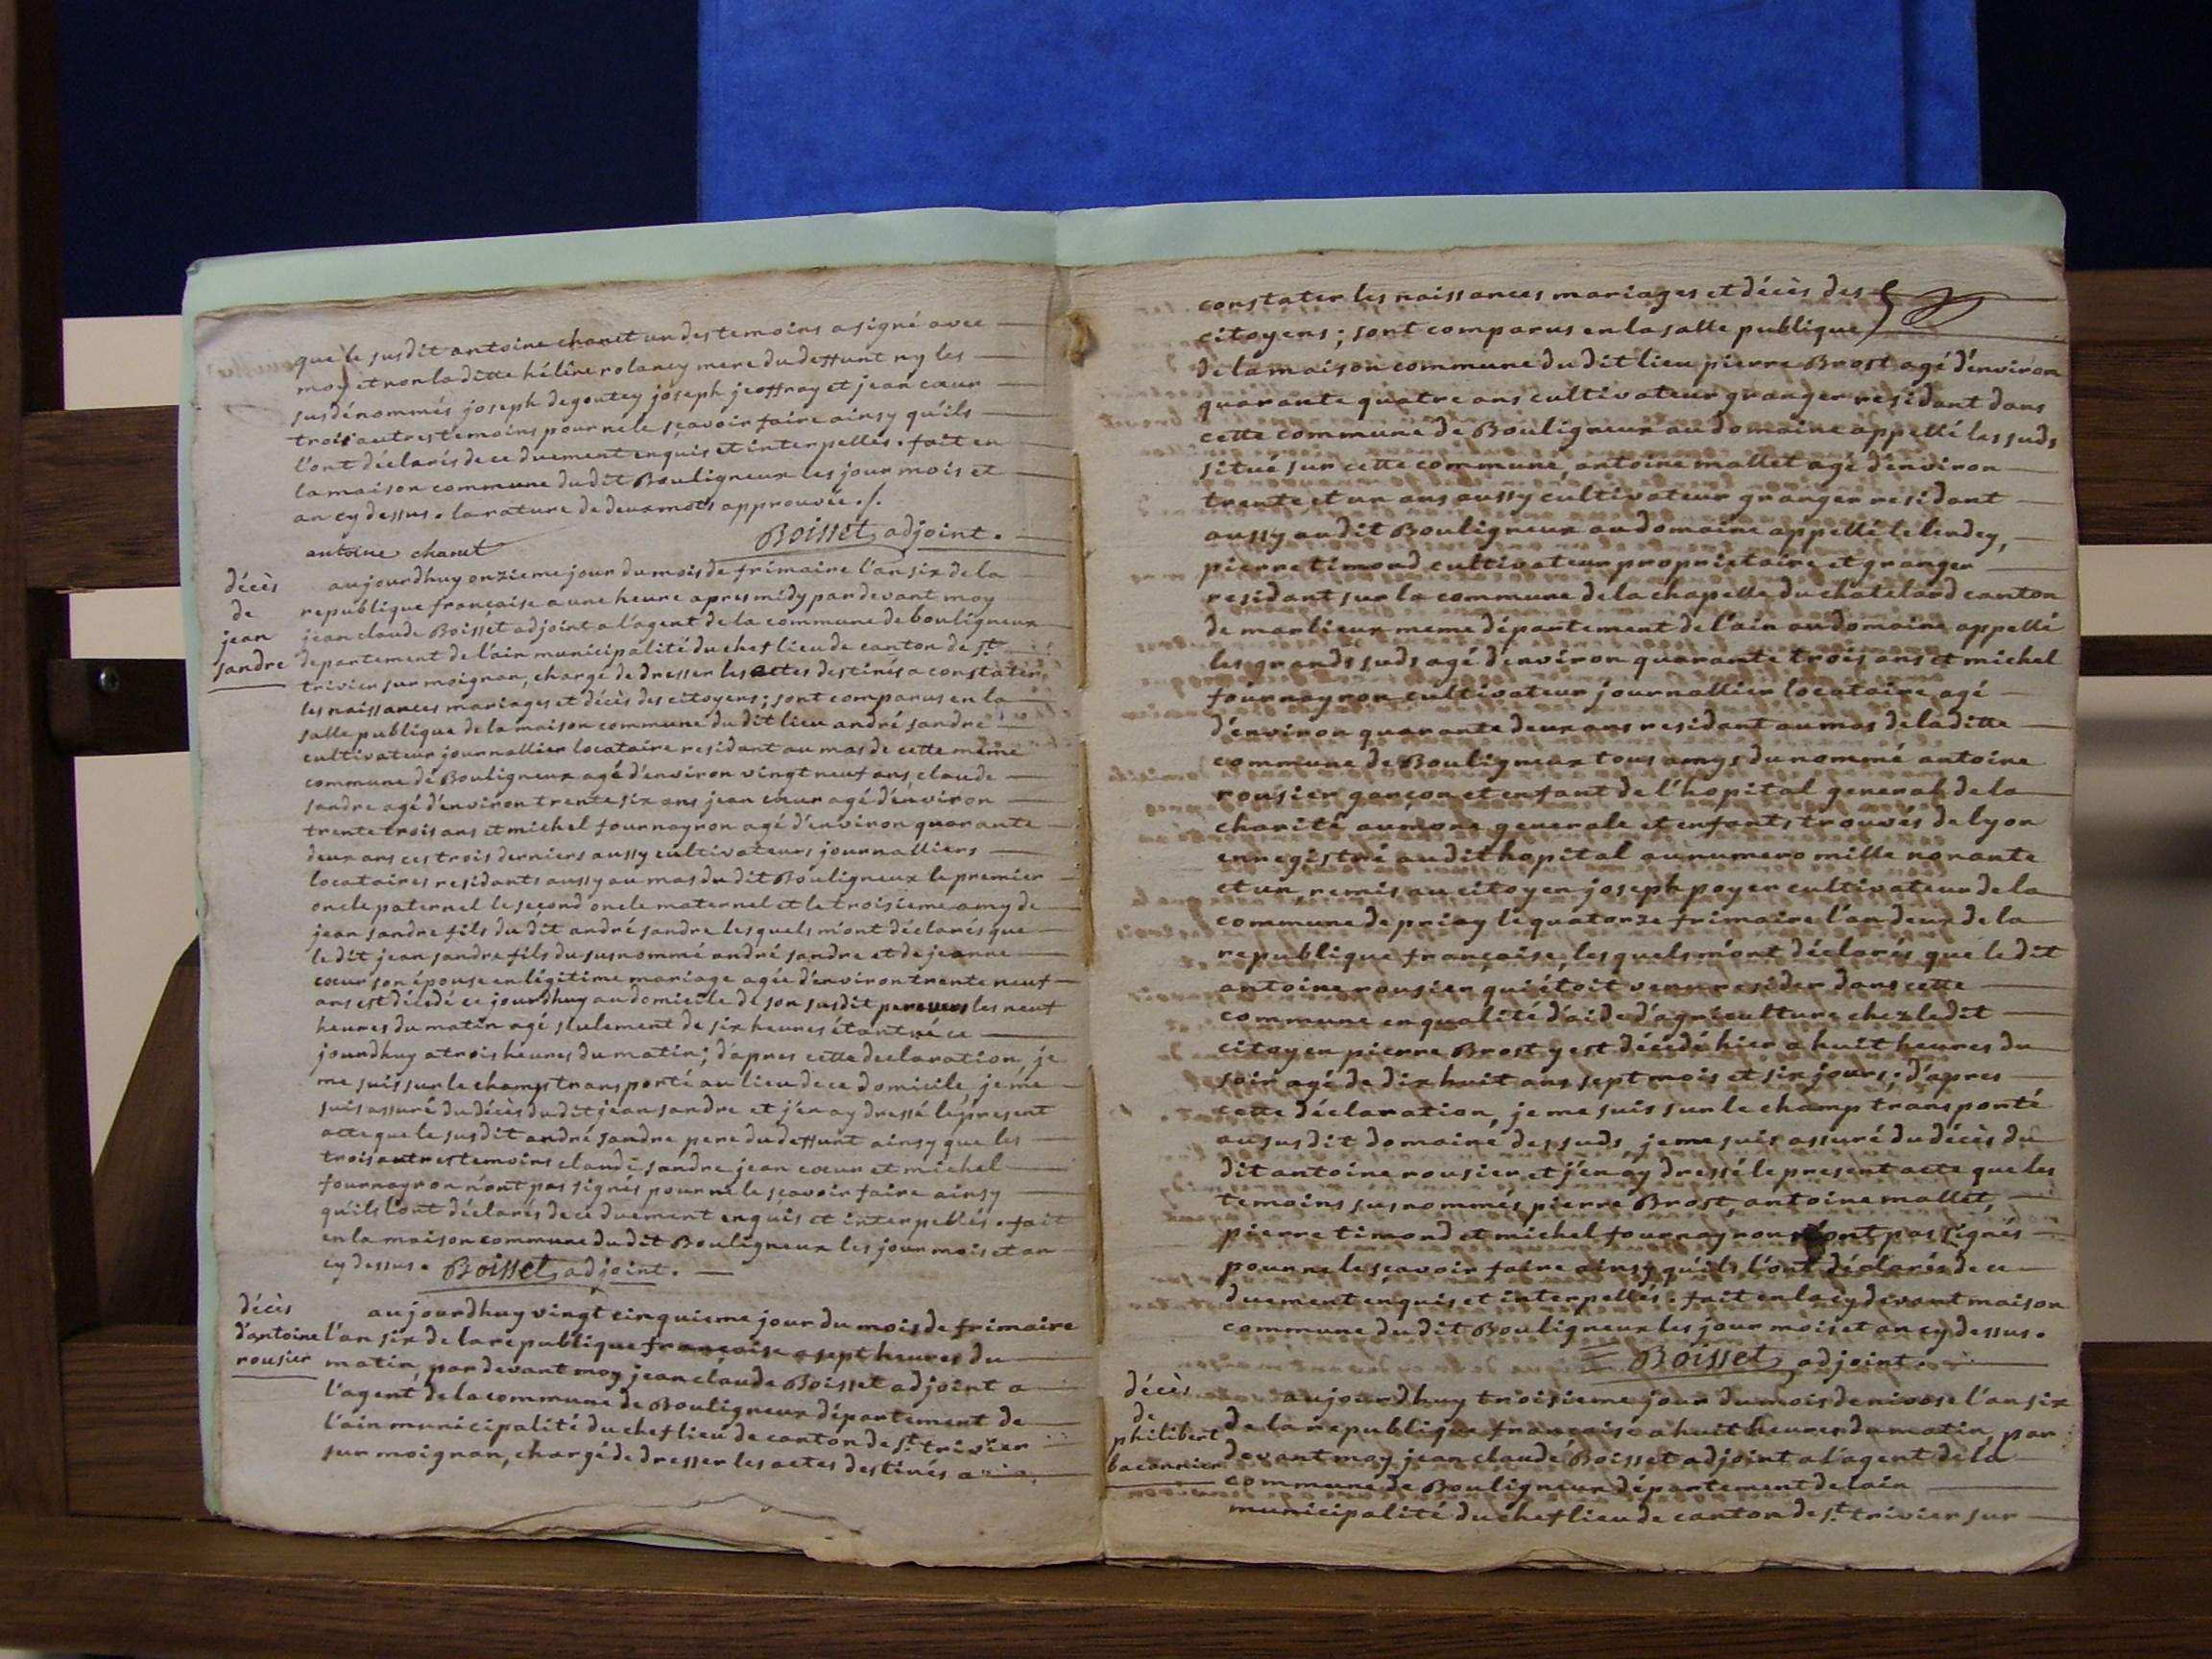 que le susdit antoine chanet un des temoins a signé avec
moy et non la ditte héléne rolancy mere du deffunt ny les
susdénommés joseph degoutey joseph jeoffray et jean cœur
trois autres temoins pour ne le sçavoir faire ainsy qu'ils
l'ont déclarés de ce duement enquis et interpellés. fait en
la maison commune dudit Bouligneux les jour mois et
an cy dessus. la rature de deux mots approuvée ./.
antoine chanet
Boisset, adjoint.
décès
de
jean
sandre
aujourdhuy onzieme jour du mois de frimaire l'an six de la
republique française a une heure apres midy pardevant moy
jean claude Boisset adjoint a l'agent de la commune de bouligneux
departement de l'ain municipalité du chef lieu de canton de st
trivier sur moignan, chargé de dresser les actes destinés a constater
les naissances mariages et décès des citoyens; sont comparus en la
salle publique de la maison commune dudit lieu andré sandre
cultivateur journallier locataire residant au mas de cette même
commune de Bouligneux agé d'environ vingt neuf ans claude
sandre agé d'environ trente six ans jean cœur agé d'environ
trente trois ans et michel fournayron agé d'environ quarante
deux ans ces trois derniers aussy cultivateurs journalliers
locataires residants aussy au mas dudit Bouligneux le premier
oncle paternel le second oncle maternel et le troisieme amy de
jean sandre fils dudit andré sandre lesquels m'ont déclarés que
ledit jean sandre fils du susnommé andré sandre et de jeanne
cœur son épouse en légitime mariage agée d'environ trente neuf
ans est décédé ce jourdhuy au domicile de son susdit pere vers les neuf
heures du matin agé seulement de six heures étant né ce
jourdhuy a trois heures du matin; d'apres cette declaration je
me suis sur le champ transporté au lieu de ce domicile je me
suis assuré du décès dudit jean sandre et j'en ay dressé le present
acte que le susdit andré sandre pere du deffunt ainsy que les
trois autres temoins claude sandre jean cœur et michel
fournayron n'ont pas signés pour ne le sçavoir faire ainsy
qu'ils l'ont déclarés de ce duement enquis et interpellés. fait
en la maison commune dudit Bouligneux les jour mois et an
cy dessus. Boisset, adjoint.
décès
d'antoine
rousier
aujourdhuy vingt cinquieme jour du mois de frimaire
l'an six de la republique française a sept heures du
matin, pardevant moy jean claude Boisset adjoint a
l'agent de la commune de Bouligneux département de
l'ain municipalité du chef lieu de canton de st. trivier
sur moignan, chargé de dresser les actes destinés a
constater les naissances mariages et décès des
citoyens; sont comparus en la salle publique
de la maison commune dudit lieu pierre Brost agé d'environ
quarante quatre ans cultivateur granger residant dans
cette commune de Bouligneux au domaine appellé les suds
situé sur cette commune, antoine mallet agé d'environ
trente et un ans aussy cultivateur granger residant
aussy audit Bouligneux au domaine appellé le lendey,
pierre timond cultivateur proprietaire et granger
residant sur la commune de la chapelle du chatelard canton
de marlieux meme département de l'ain au domaine appellé
les grands suds agé d'environ quarante trois ans et michel
fournayron cultivateur journallier locataire agé
d'environ quarante deux ans residant au mas de laditte
commune de Bouligneux tous amys du nommé antoine
rousier garçon et enfant de l'hopital general de la
charité aumone generale et enfants trouvés de lyon
enregistré audit hopital au numero mille nonante
et un, remis au citoyen joseph poyer cultivateur de la
commune de priay le quatorze frimaire l'an deux de la
republique française, lesquels m'ont déclarés que ledit
antoine rousier qui étoit venu resider dans cette
commune en qualité d'aide d'agriculture chez ledit
citoyen pierre Brost y est décédé hier a huit heures du
soir agé de dix huit ans sept mois et six jours; d'apres
cette déclaration, je me suis sur le champ transporté
au susdit domaine des suds, je me suis assuré du décès du
dit antoine rousier, et j'en ay dressé le present acte que les
temoins susnommés pierre Brost, antoine mallet,
pierre timond et michel fournayron n'ont pas signés
pour ne le sçavoir faire ainsy qu'ils l'ont déclarés de ce
duement enquis et interpellés. fait en la cy devant maison
commune dudit Bouligneux les jour mois et an cy dessus.
Boisset, adjoint.
décès
de
philibert
baconnier
aujourdhuy troisieme jour du mois de nivose l'an six
de la republique française a huit heures du matin, par
devant moy jean claude Boisset adjoint a l'agent de la
commune de Bouligneux département de lain
municipalité du chef lieu de canton de st. trivier sur